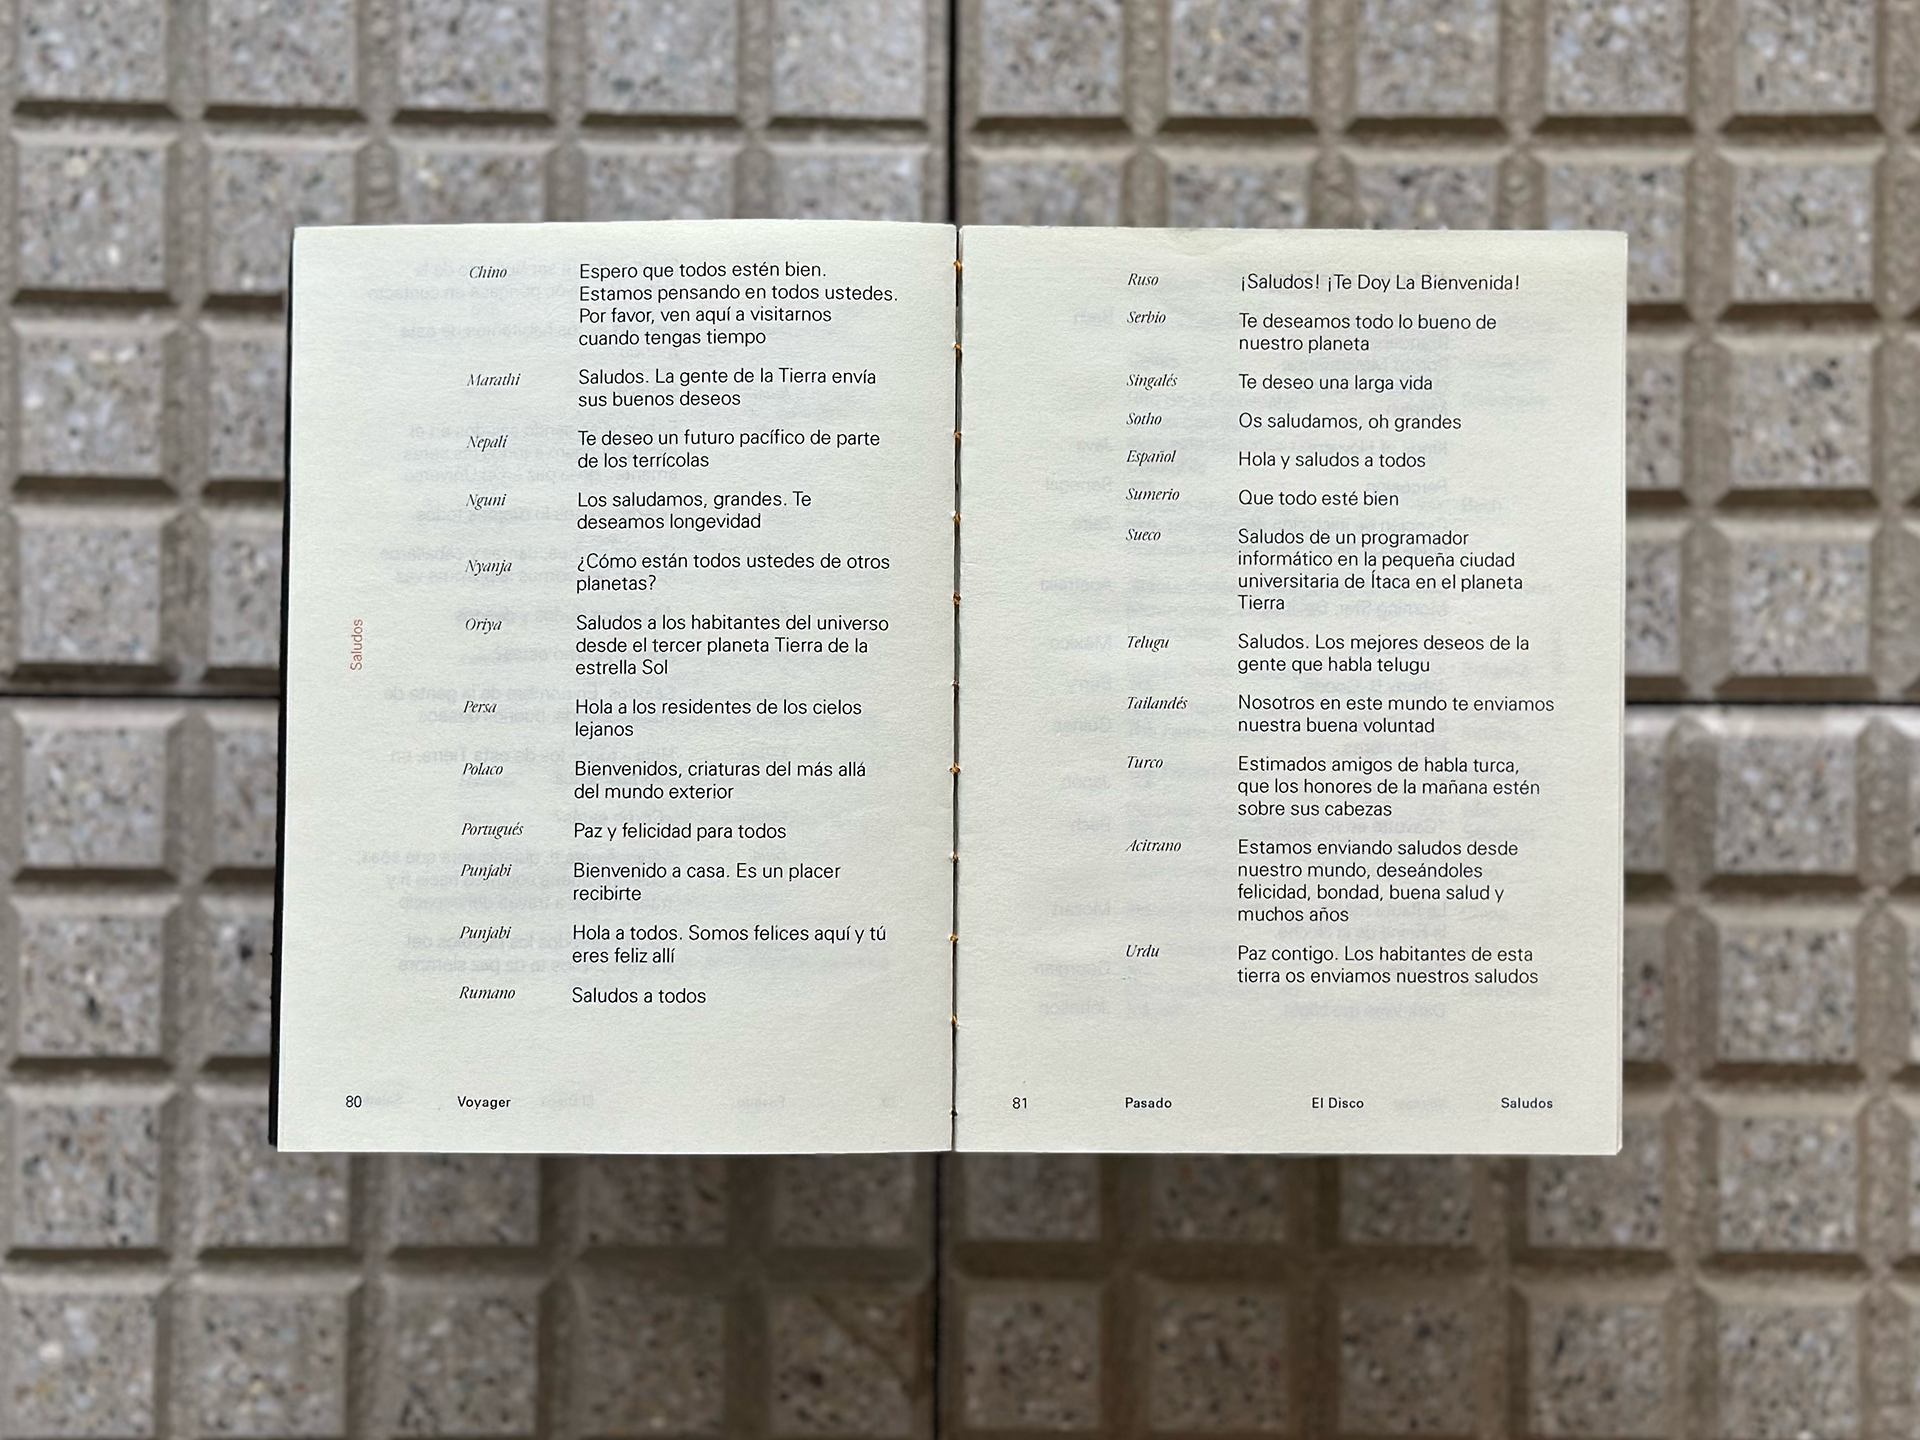 Chino
Espero que todos estén bien.
Estamos pensando en todos ustedes.
Por favor, ven aquí a visitarnos
cuando tengas tiempo
Marathi
Saludos. La gente de la Tierra envía
sus buenos deseos
Nepalí
Te deseo un futuro pacífico de parte
de los terrícolas
Nguni
Los saludamos, grandes. Te
deseamos longevidad
Nyanja
¿Cómo están todos ustedes de otros
planetas?
Oriya
Saludos a los habitantes del universo
desde el tercer planeta Tierra de la
estrella Sol
Persa
Hola a los residentes de los cielos
lejanos
Polaco
Bienvenidos, criaturas del más allá
del mundo exterior
Portugués
Paz y felicidad para todos
Punjabi
Bienvenido a casa. Es un placer
recibirte
Punjabi
Hola a todos. Somos felices aquí y tú
eres feliz allí
Rumano
Saludos a todos
Saludos
80
Voyager
Ruso
¡Saludos! ¡Te Doy La Bienvenida!
Serbio
Te deseamos todo lo bueno de
nuestro planeta
Singalés
Te deseo una larga vida
Sotho
Os saludamos, oh grandes
Español
Hola y saludos a todos
Sumerio
Que todo esté bien
Sueco
Saludos de un programador
informático en la pequeña ciudad
universitaria de Ítaca en el planeta
Tierra
Telugu
Saludos. Los mejores deseos de la
gente que habla telugu
Tailandés
Nosotros en este mundo te enviamos
nuestra buena voluntad
Turco
Estimados amigos de habla turca,
que los honores de la mañana estén
sobre sus cabezas
Acitrano
Estamos enviando saludos desde
nuestro mundo, deseándoles
felicidad, bondad, buena salud y
muchos años
Urdu
Paz contigo. Los habitantes de esta
tierra os enviamos nuestros saludos
81
Pasado
El Disco
Saludos